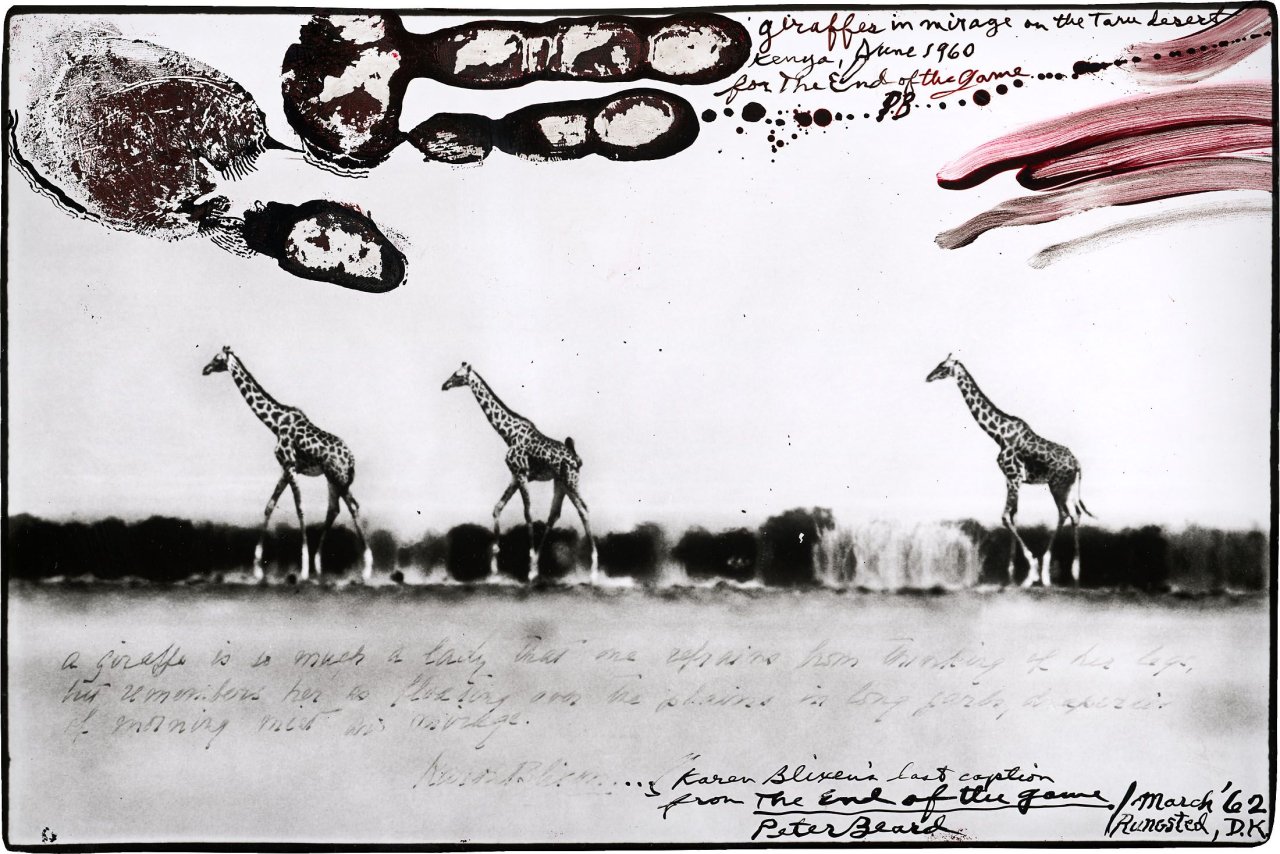 giraffes in mirage on the Taru desert
Kenya, June 1960
for The End of the game
P.B
a giraffe is so much a lady that one refrains from thinking of her legs,
but remembers her as floating over the plains in long garbs, draperies
of morning mist or mirage.
Karen Blixen....
Karen Blixen's last caption
from The End of the game / March '62
Peter Beard Rungsted, D.K.